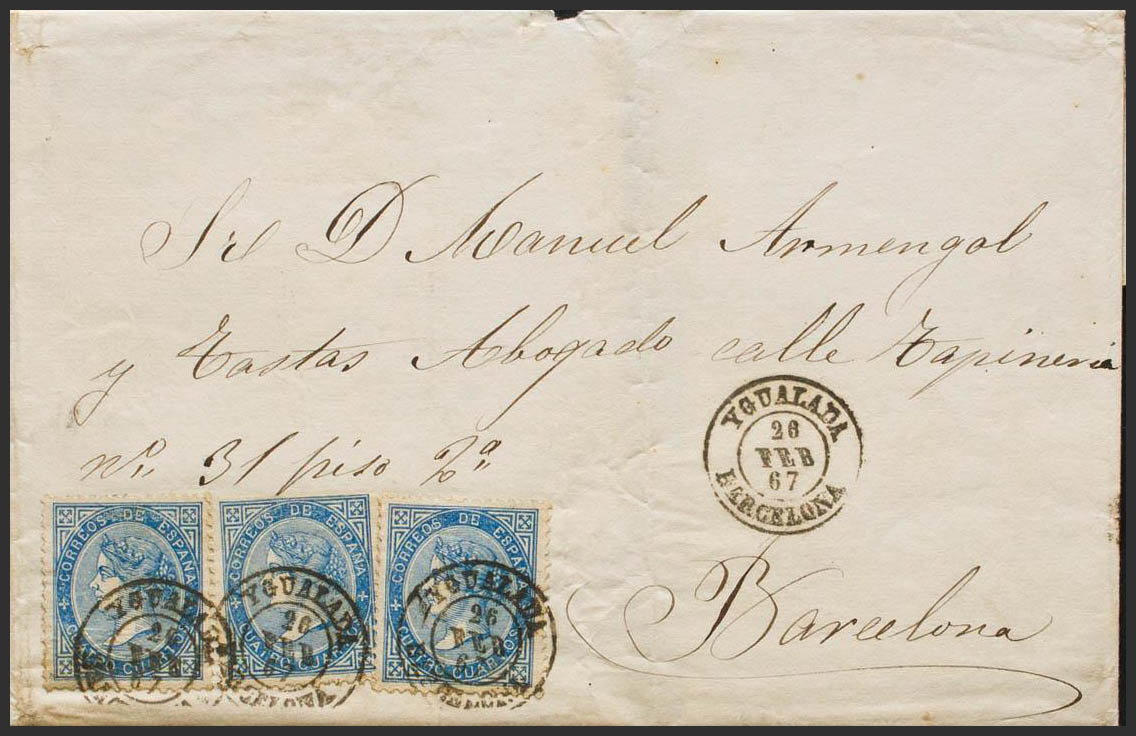 Sr D Manuel Armengol
y Tastas Abogado calle Tapineria
nº 31 piso 2º
YGUALADA
26
FEB
67
BARCELONA
Barcelona
CORREOS DE ESPAÑA
CUATRO CUARTOS
YGUALADA
26
CORREOS DE ESPAÑA
CUATRO CUARTOS
YGUALADA
26
FEB
BARCELONA
CORREOS DE ESPAÑA
CUATRO CUARTOS
YGUALADA
26
FEB
BARCELONA